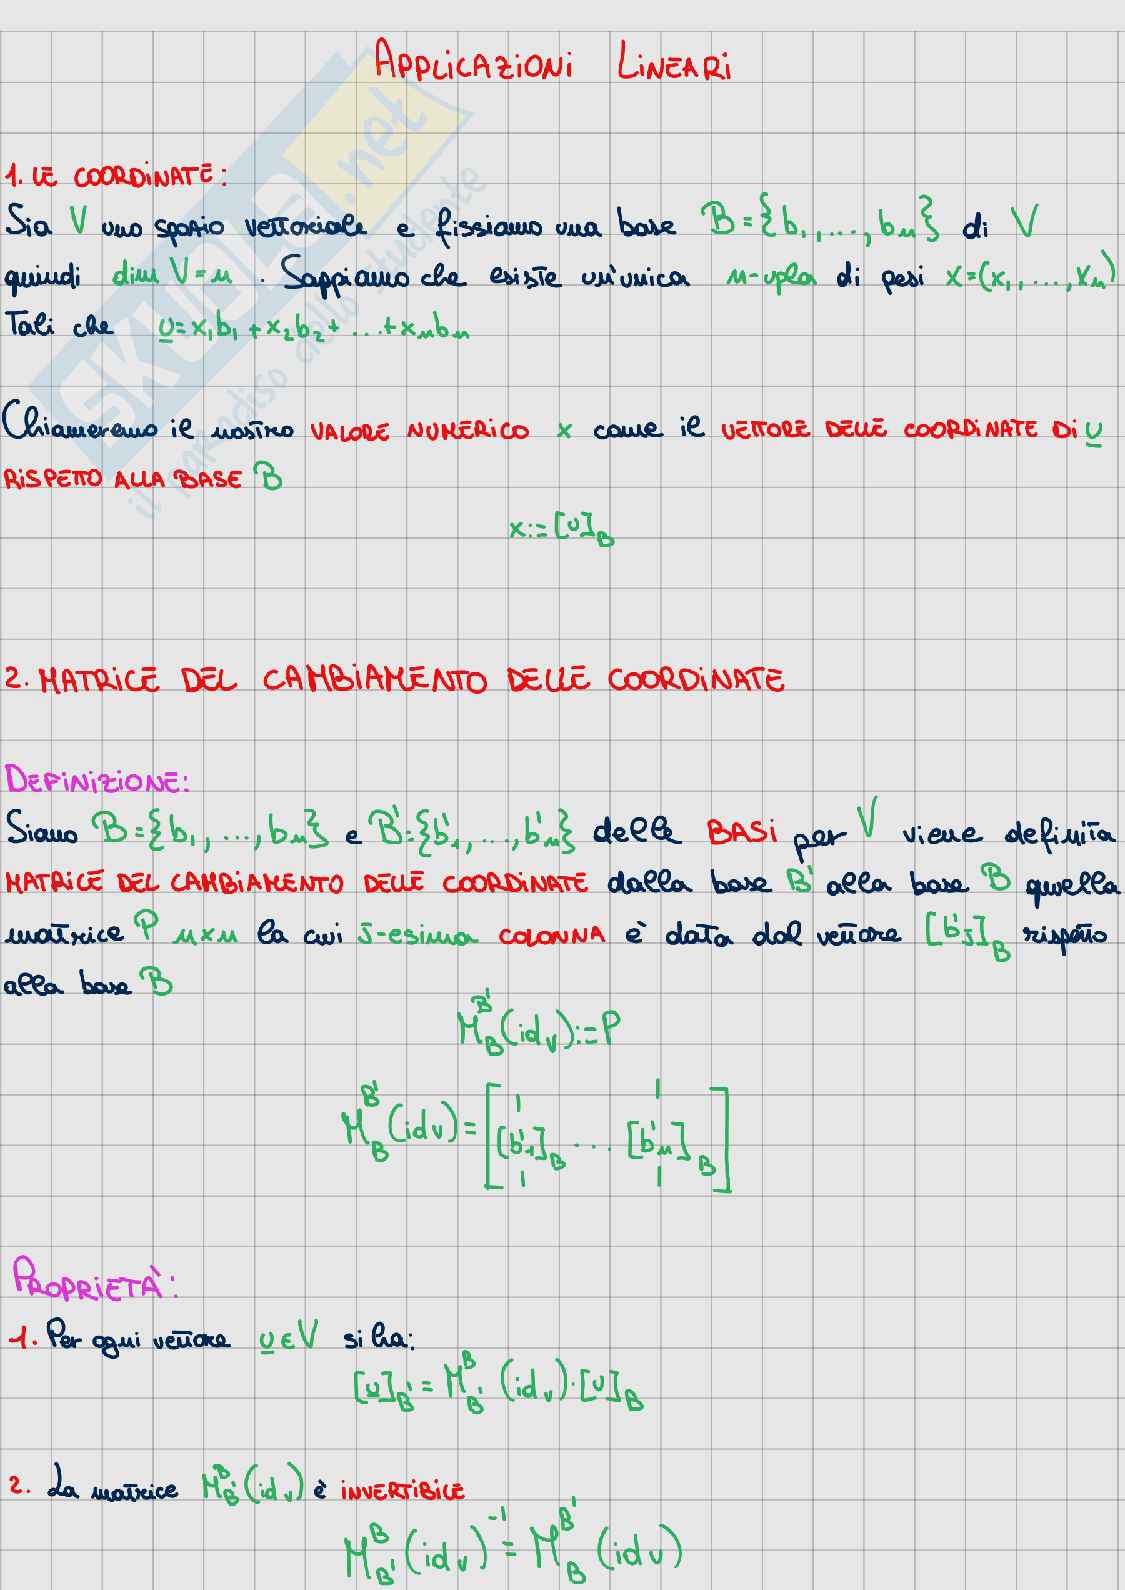 APPLICAZIONI LINEARI
1. LE COORDINATE:
Sia V uno spazio vettoriale e fissiamo una base B={b₁,...,bₙ} di V
quindi dim V=n . Sappiamo che esiste un'unica n-upla di pesi x=(x₁,...,xₙ)
Tali che u=x₁b₁+x₂b₂+...+xₙbₙ
Chiameremo il nostro VALORE NUMERICO x come il VETTORE DELLE COORDINATE DI u
RISPETTO ALLA BASE B
x:=[u]_B
2. MATRICE DEL CAMBIAMENTO DELLE COORDINATE
DEFINIZIONE:
Siano B={b₁,...,bₙ} e B'={b'₁,...,b'ₙ} delle BASI per V viene definita
MATRICE DEL CAMBIAMENTO DELLE COORDINATE dalla base B' alla base B quella
matrice P n×n la cui J-esima COLONNA è data dal vettore [b'_J]_B rispetto
alla base B
M_B^B'(id_V):=P
M_B^B'(id_V)=[[b'₁]_B ... [b'ₙ]_B]
PROPRIETÀ:
1. Per ogni vettore u∈V si ha:
[u]_B' = M_B'^B (id_V)·[u]_B
2. La matrice M_B'^B(id_V) è INVERTIBILE
M_B'^B(id_V)⁻¹ = M_B^B'(id_V)
SKUOLA.net
il paradiso dello studente